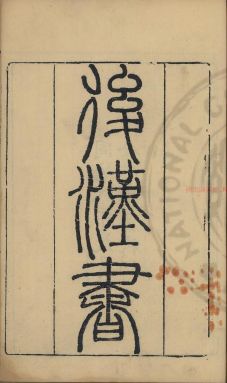 後漢書
NATIONAL C